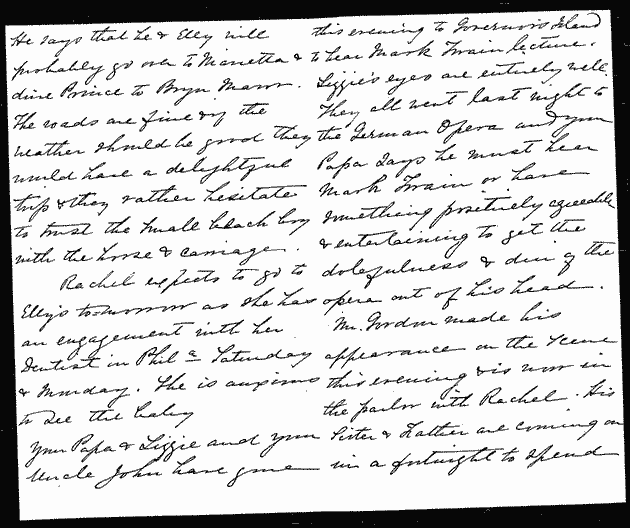 He says that he & Elly will
probably go over to Marietta &
drive Prince to Bryn Mawr.
The roads are fine & if the
weather should be good they
would have a delightful
trip & they rather hesitate
to trust the small black boy
with the horse & carriage.
Rachel expects to go to
Elly's to-morrow as she has
an engagement with her
Dentist in Phila Saturday
& Monday. She is anxious
to see the baby
Your Papa & Lizzie and your
Uncle John have gone
this evening to Governor's Island
to hear Mark Twain lecture.
Lizzie's eyes are entirely well.
They all went last night to
the German Opera and your
Papa says he must hear
Mark Twain or have
something positively agreeable
& entertaining to get the
dolefulness & din of the
opera out of his head.
Mr. Gordon made his
appearance on the scene
this evening & is now in
the parlor with Rachel. His
Sister & Father are coming on
in a fortnight to spend